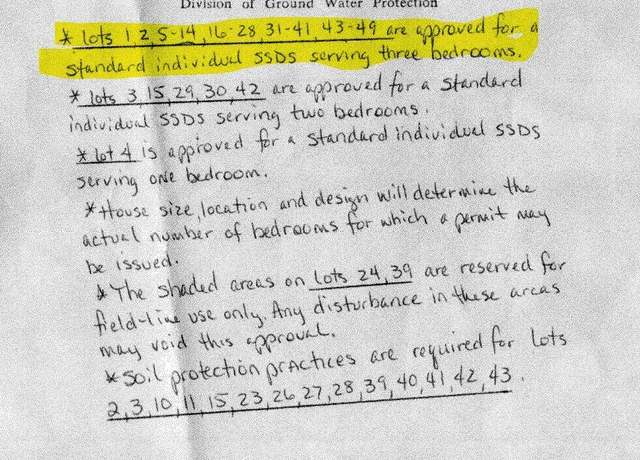 Division of Ground Water Protection
* lots 1, 2, 5-14, 16-28, 31-41, 43-49 are approved for a
standard individual SSDS serving three bedrooms.
* lots 3, 15, 29, 30, 42 are approved for a standard
individual SSDS serving two bedrooms.
* lot 4 is approved for a standard individual SSDS
serving one bedroom.
* House size, location and design will determine the
actual number of bedrooms for which a permit may
be issued.
* The shaded areas on lots 24, 39 are reserved for
field-line use only. Any disturbance in these areas
may void this approval.
* Soil protection practices are required for Lots
2, 3, 10, 11, 15, 23, 26, 27, 28, 39, 40, 41, 42, 43.